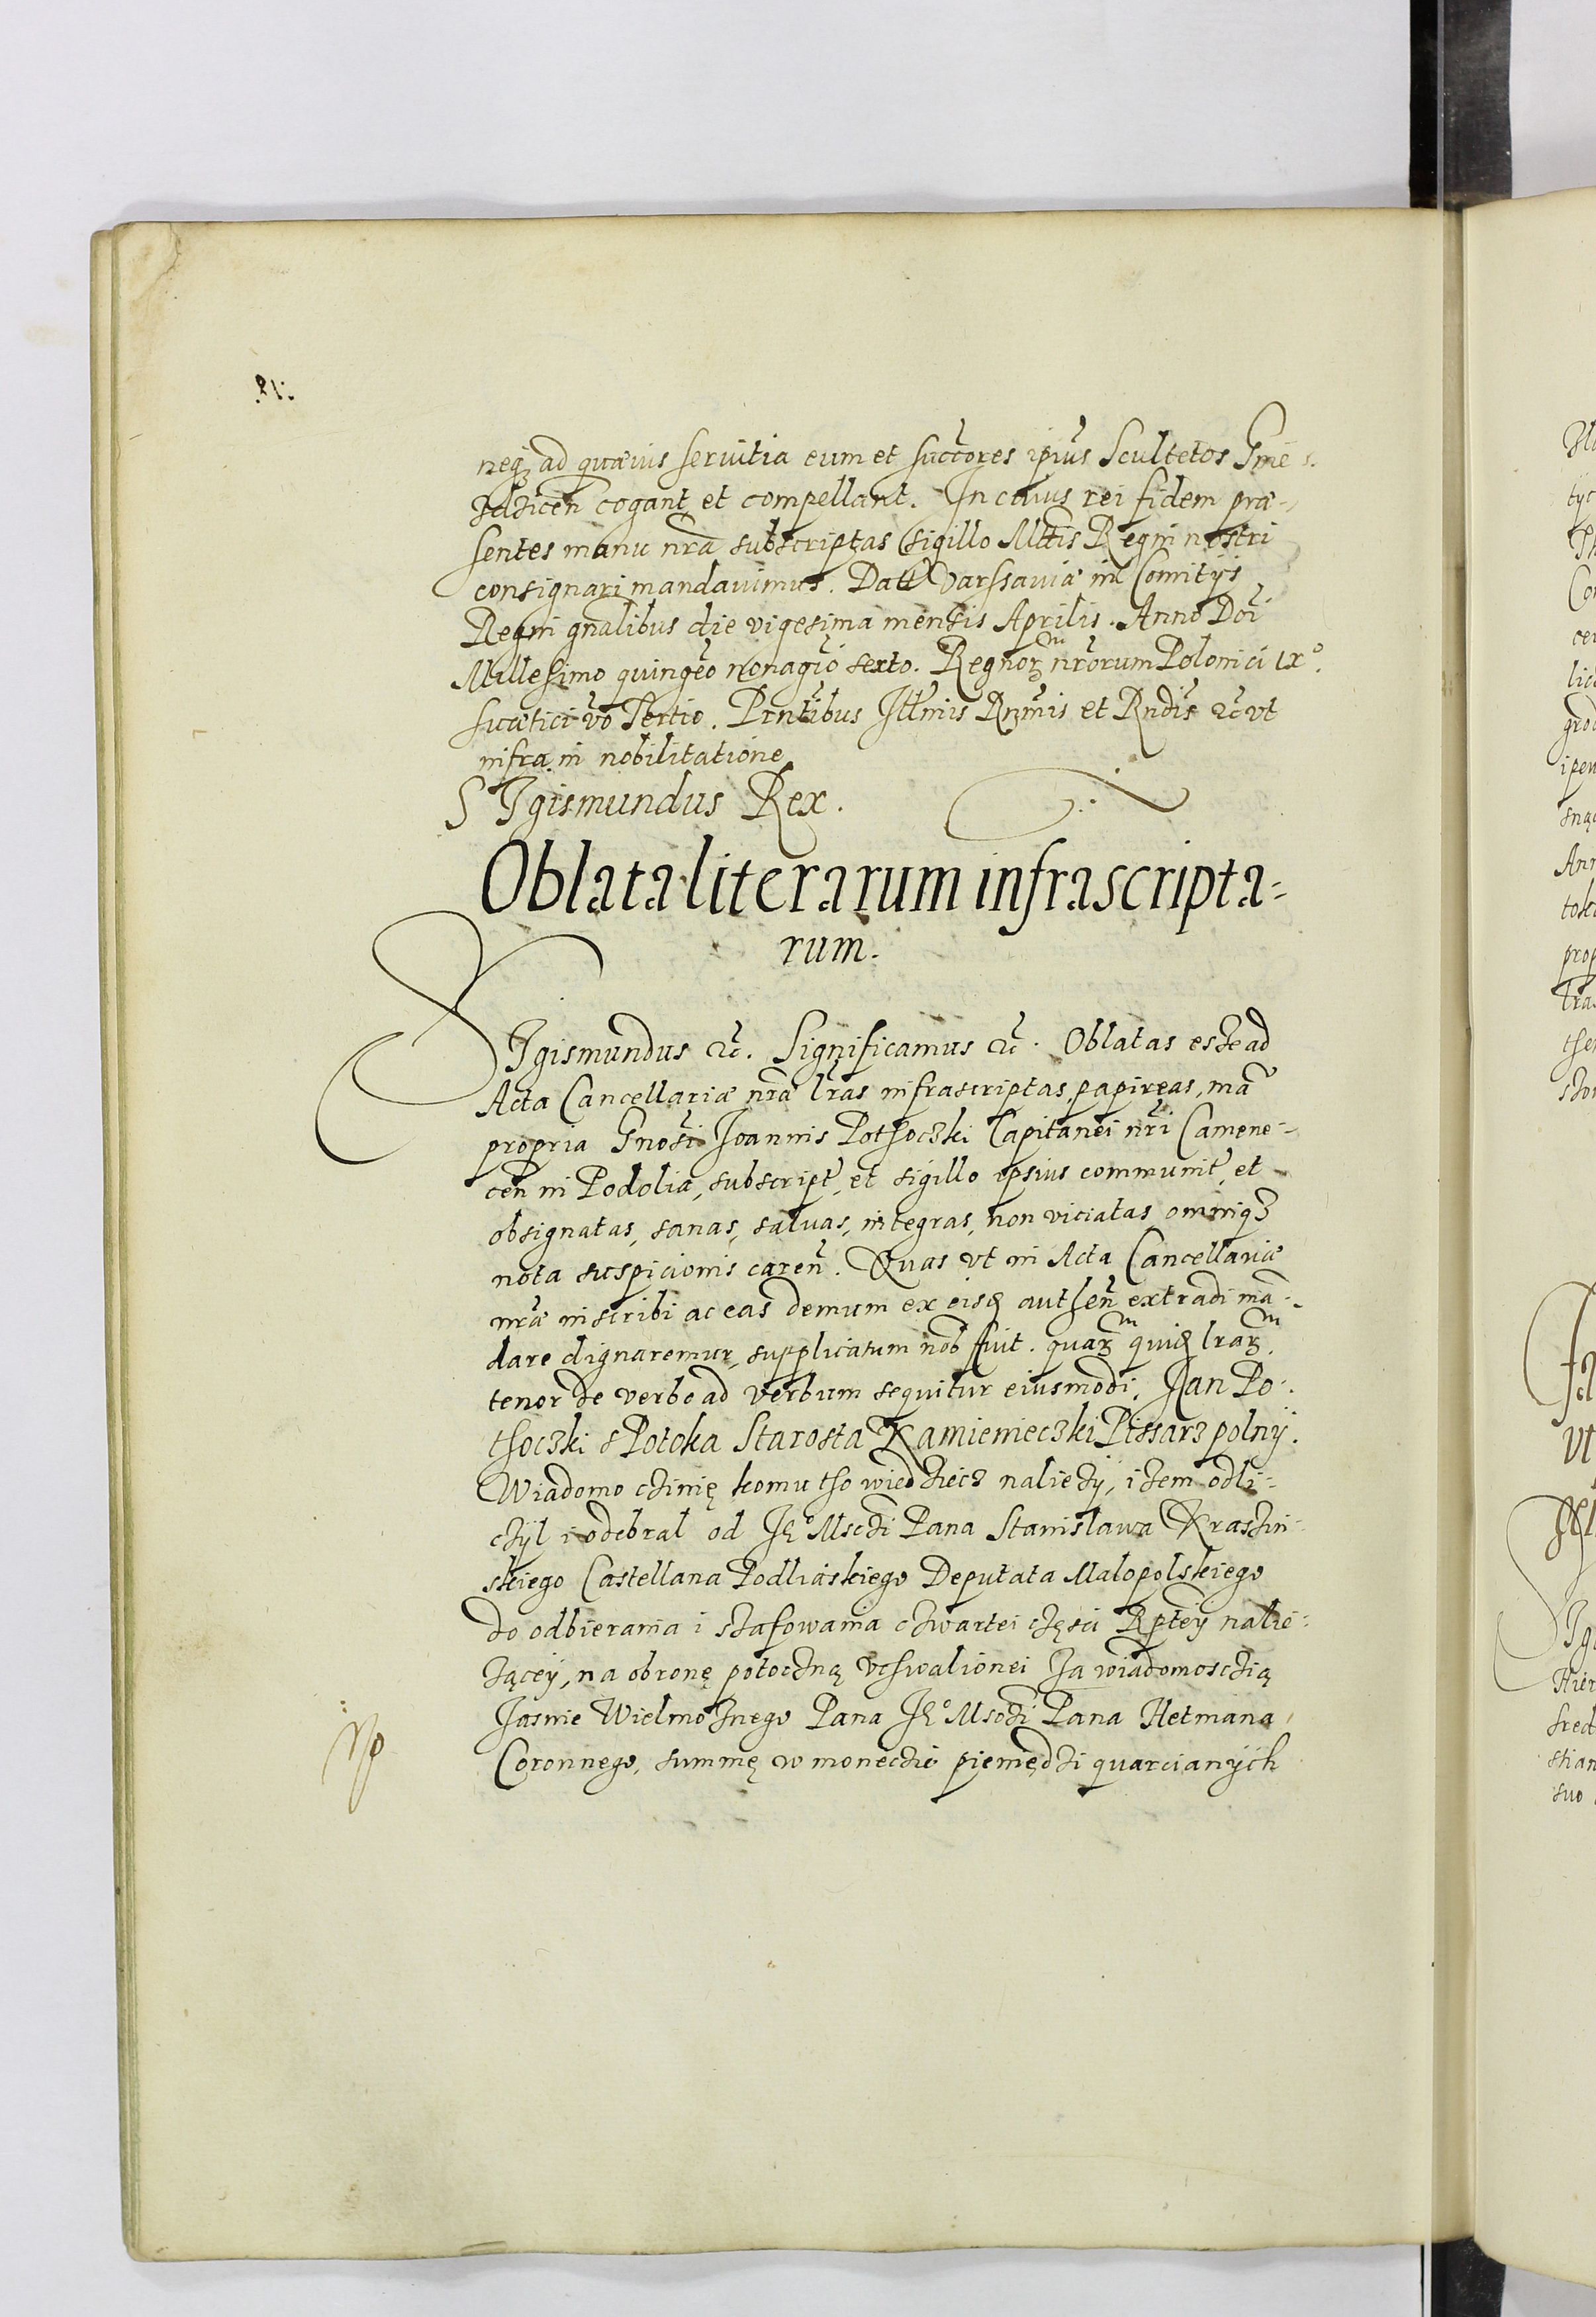 neq₃ ad quæuis seruitia eum et succores ipius Scultetos
cogant et compellant. In cuius rei fidem præ-
sentes manu nrã subscriptas sigillo Mttis Regni nostri
consignari mandauimus. Datt Varssauiæ in Comitys
Regni gnalibus die vigesima mensis Aprilis. Anno Doi
Millesimo quingeo nonagio sexto. Regnorᵐ nrorum Poloniĉi ıx°.
Suætici vo Tertio. Pntibus Illmis Rnmis et Rndis &c vt
infra in nobilitatione
SIgismundus Rex.
Oblata literarum infrascripta=
rum.
SIgismundus &c. Significamus &c. Oblatas esse ad
Acta Cancellariæ nræ lras infrascriptas, papireas, mã
propria Gnosi Joannis Pothoczki Capitanei nri Camene-
cen in Podolia, subscript, et sigillo ipsius communit, et
obsignatas, sanas, saluas, integras, non viciatas omniq₃
nota suspicionis caren. Quas vt in Acta Cancellariæ
nræ inscribi ac eas demum ex eisd authen extradi mã-
dare dignaremur, supplicatum nob fuit. quarᵐ quid lrarᵐ
tenor de verbo ad verbum sequitur eiusmodi. Jan Po-
thoczki s Potoka Starosta Kamienieczki Pissarz polny.
Wiadomo czinię komu tho wiedziecz nalieży, iżem odli-
czÿl i odebral od Je° Msczi Pana Stanislawa Krasin-
skiego Castellana Podliaskiego Deputata Malopolskiego
do odbierania i szafowania czwartei częsci Rptey nalie-
żącey, na obronę potoczną vchwalionei za wiadomosczią
Jasnie Wielmożnego Pana Je° Msczi Pana Hetmana
Coronnego, summę w monecie pieniędzi quarcianych